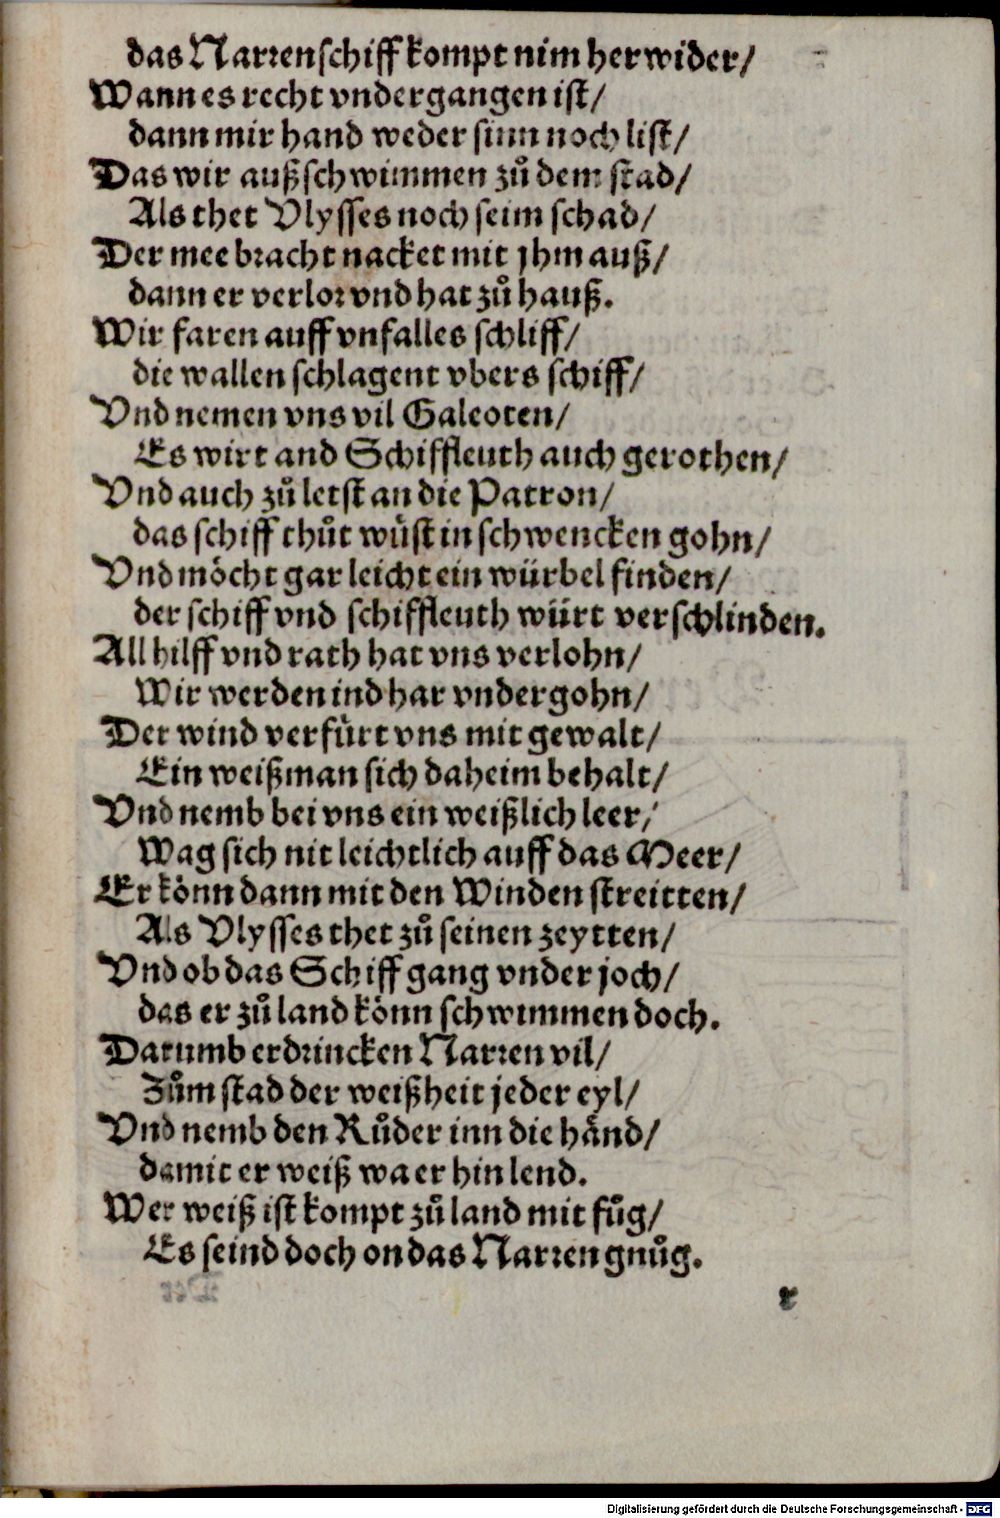 das Narrenschiff kompt nim her wider/
Wann es recht vndergangen ist/
dann mir hand weder sinn noch list/
Das wir außschwimmen zů dem stad/
Als thet Vlysses noch seim schad/
Der mee bracht nacket mit jhm auß/
dann er verlor vnd hat zů hauß.
Wir faren auff vnfalles schliff/
die wallen schlagent vbers schiff/
Vnd nemen vns vil Galeoten/
Es wirt and Schiffleuth auch gerothen/
Vnd auch zů letst an die Patron/
das schiff thůt wůst in schwencken gohn/
Vnd möcht gar leicht ein würbel finden/
der schiff vnd schiffleuth würt verschlinden.
All hilff vnd rath hat vns verlohn/
Wir werden ind har vndergohn/
Der wind verfürt vns mit gewalt/
Ein weißman sich daheim behalt/
Vnd nemb bei vns ein weißlich leer/
Wag sich nit leichtlich auff das Meer/
Er könn dann mit den Winden streitten/
Als Vlysses thet zů seinen zeytten/
Vnd ob das Schiff gang vnder joch/
das er zů land könn schwimmen doch.
Darumb erdrincken Narren vil/
Zům stad der weißheit jeder eyl/
Vnd nemb den Růder inn die händ/
damit er weiß wa er hin lend.
Wer weiß ist kompt zů land mit fůg/
Es seind doch on das Narren gnůg.
r
Digitalisierung gefördert durch die Deutsche Forschungsgemeinschaft - DFG